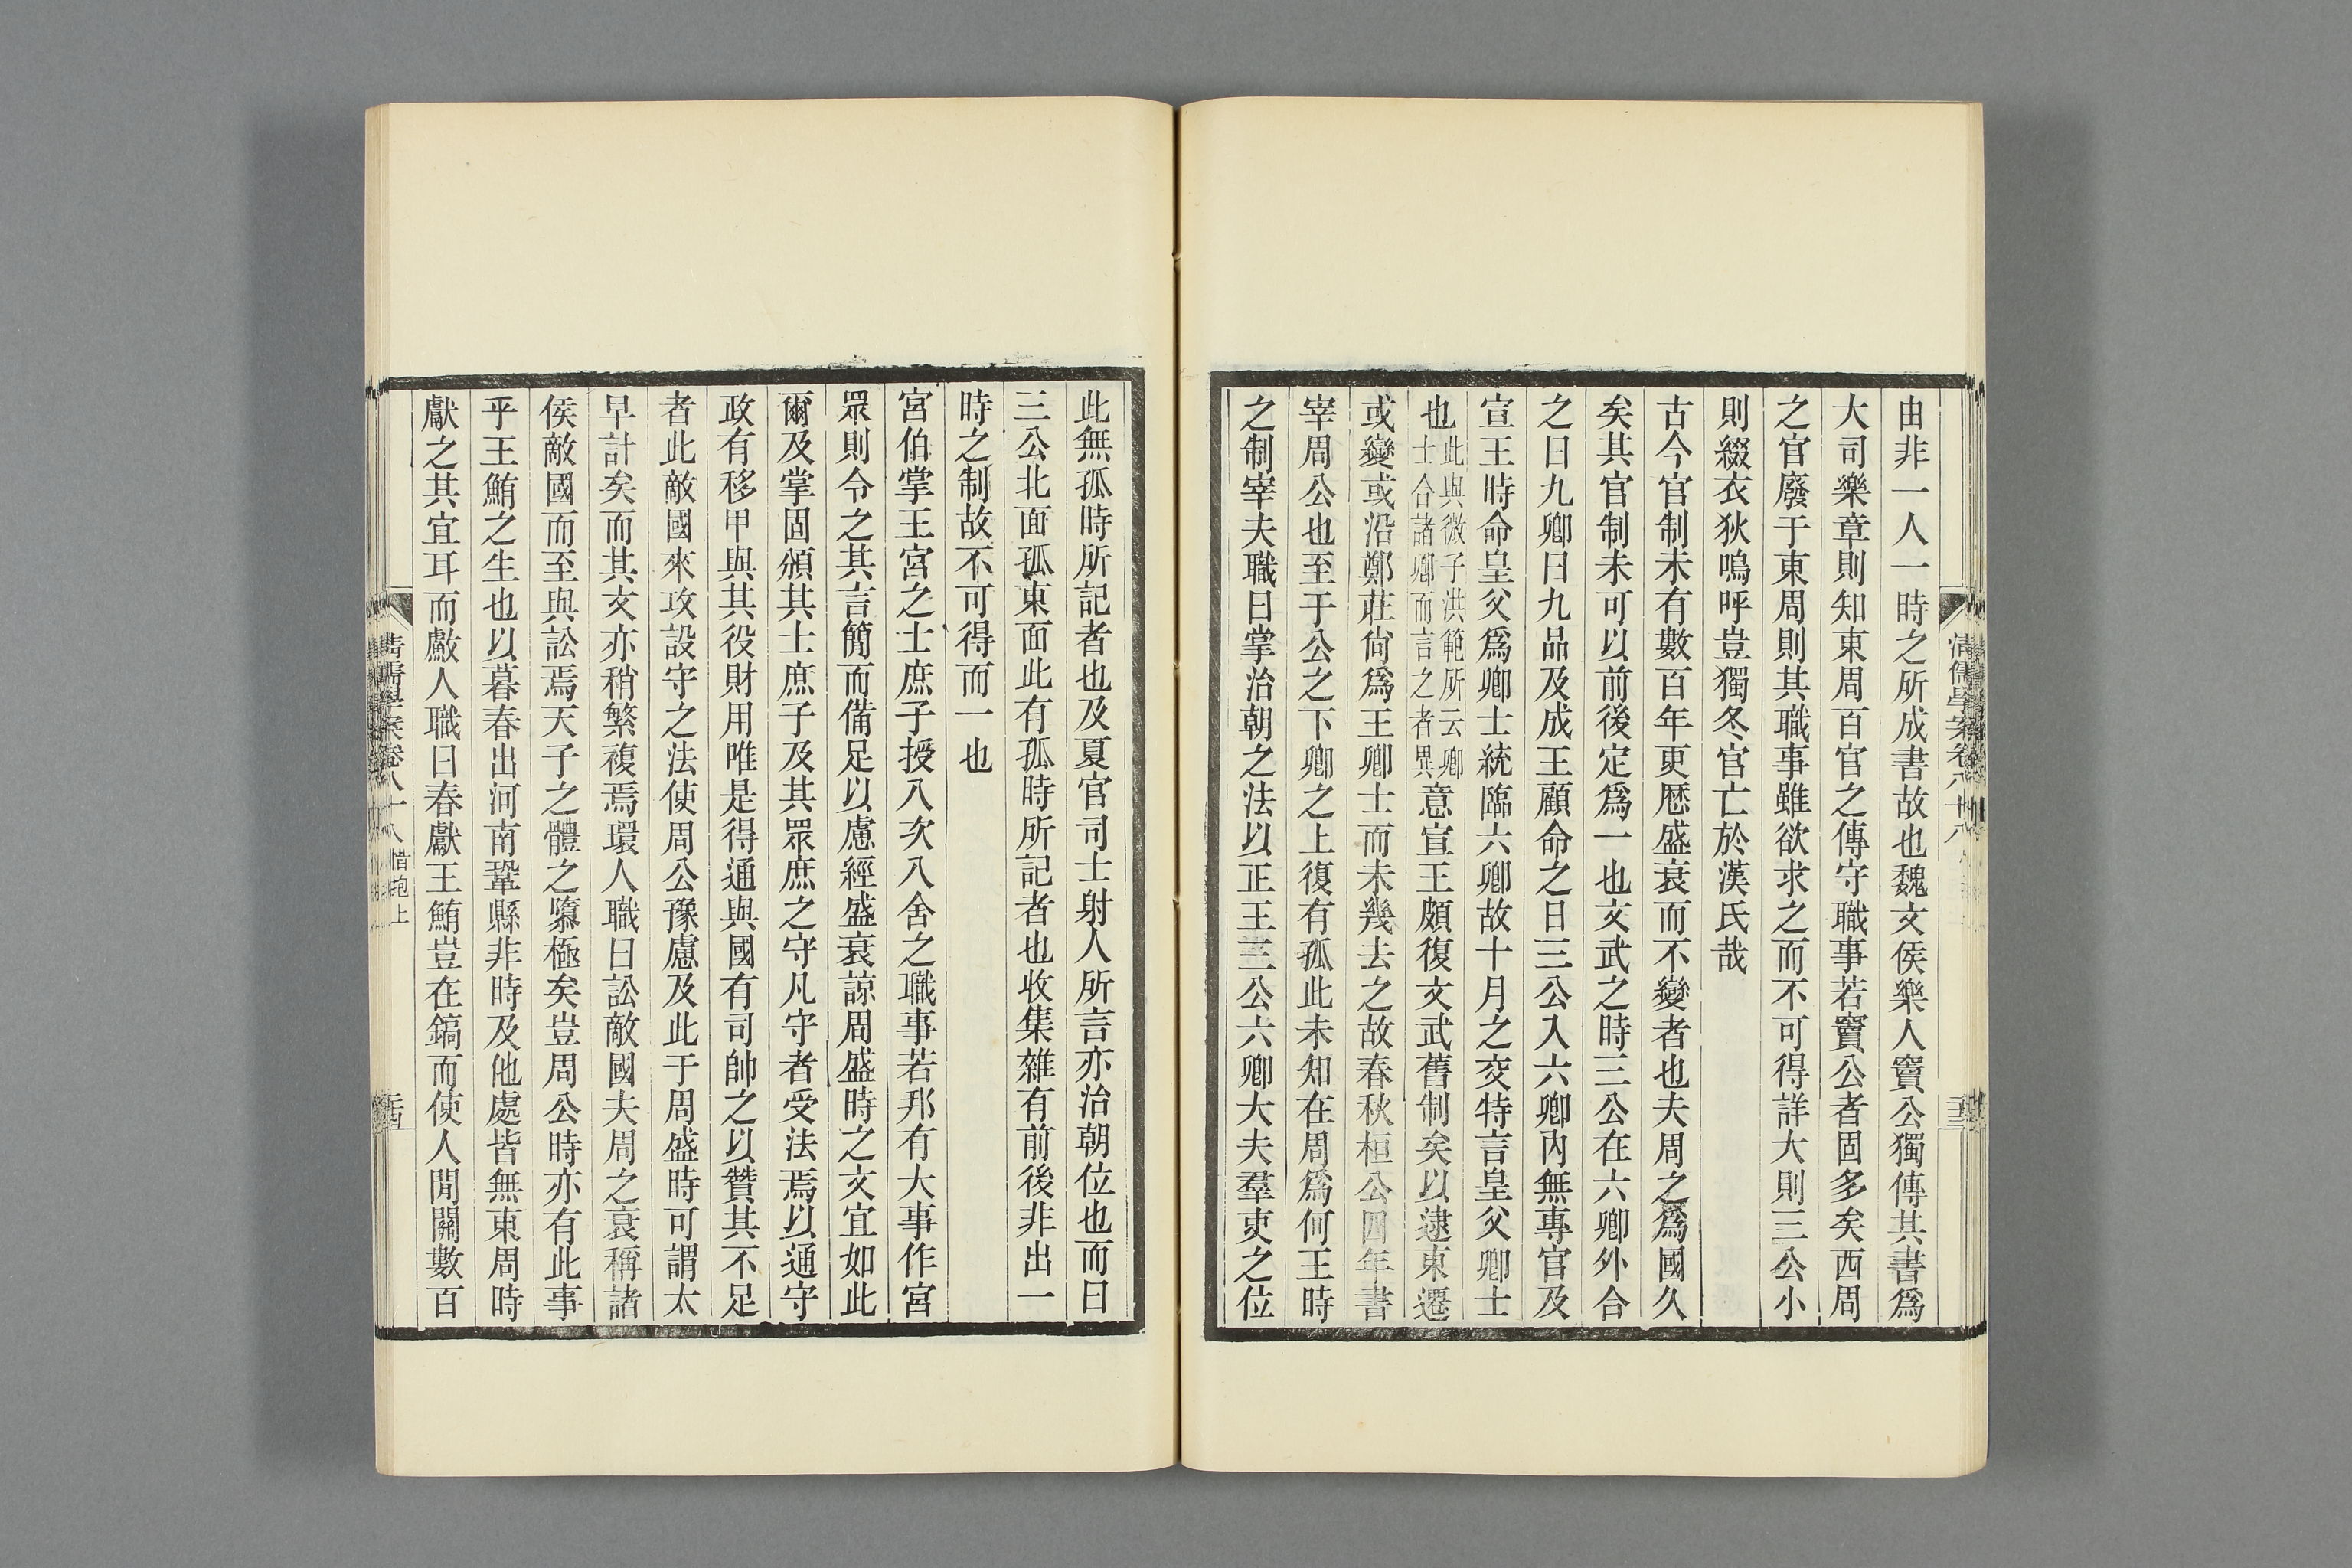 由非一人一時之所成書故也魏文侯樂人竇公獨傳其書爲
大司樂章則知東周百官之傳守職事若竇公者固多矣西周
之官廢于東周則其職事雖欲求之而不可得詳大則三公小
則綴衣狄嗚呼豈獨冬官亡於漢氏哉
古今官制未有數百年更歷盛衰而不變者也夫周之爲國久
矣其官制未可以前後定爲一也文武之時三公在六卿外合
之曰九卿曰九品及成王顧命之日三公入六卿內無專官及
宣王時命皇父爲卿士統臨六卿故十月之交特言皇父卿士
也此與微子洪範所云卿士合諸卿而言之者異意宣王頗復文武舊制矣以逮東遷
或變或沿鄭莊尙爲王卿士而未幾去之故春秋桓公四年書
宰周公也至于公之下卿之上復有孤此未知在周爲何王時
之制宰夫職曰掌治朝之法以正王三公六卿大夫羣吏之位
清儒學案卷八十八
此無孤時所記者也及夏官司士射人所言亦治朝位也而曰
三公北面孤東面此有孤時所記者也收集雜有前後非出一
時之制故不可得而一也
宮伯掌王宮之士庶子授八次八舍之職事若邦有大事作宮
眾則令之其言簡而備足以慮經盛衰諒周盛時之文宜如此
爾及掌固頒其士庶子及其眾庶之守凡守者受法焉以通守
政有移甲與其役財用唯是得通與國有司帥之以贊其不足
者此敵國來攻設守之法使周公豫慮及此于周盛時可謂太
早計矣而其文亦稍繁複焉環人職曰訟敵國夫周之衰稱諸
侯敵國而至與訟焉天子之體之隳極矣豈周公時亦有此事
乎王鮪之生也以暮春出河南鞏縣非時及他處皆無東周時
獻之其宜耳而䱷人職曰春獻王鮪豈在鎬而使人閒關數百
清儒學案卷八十八 惜抱上